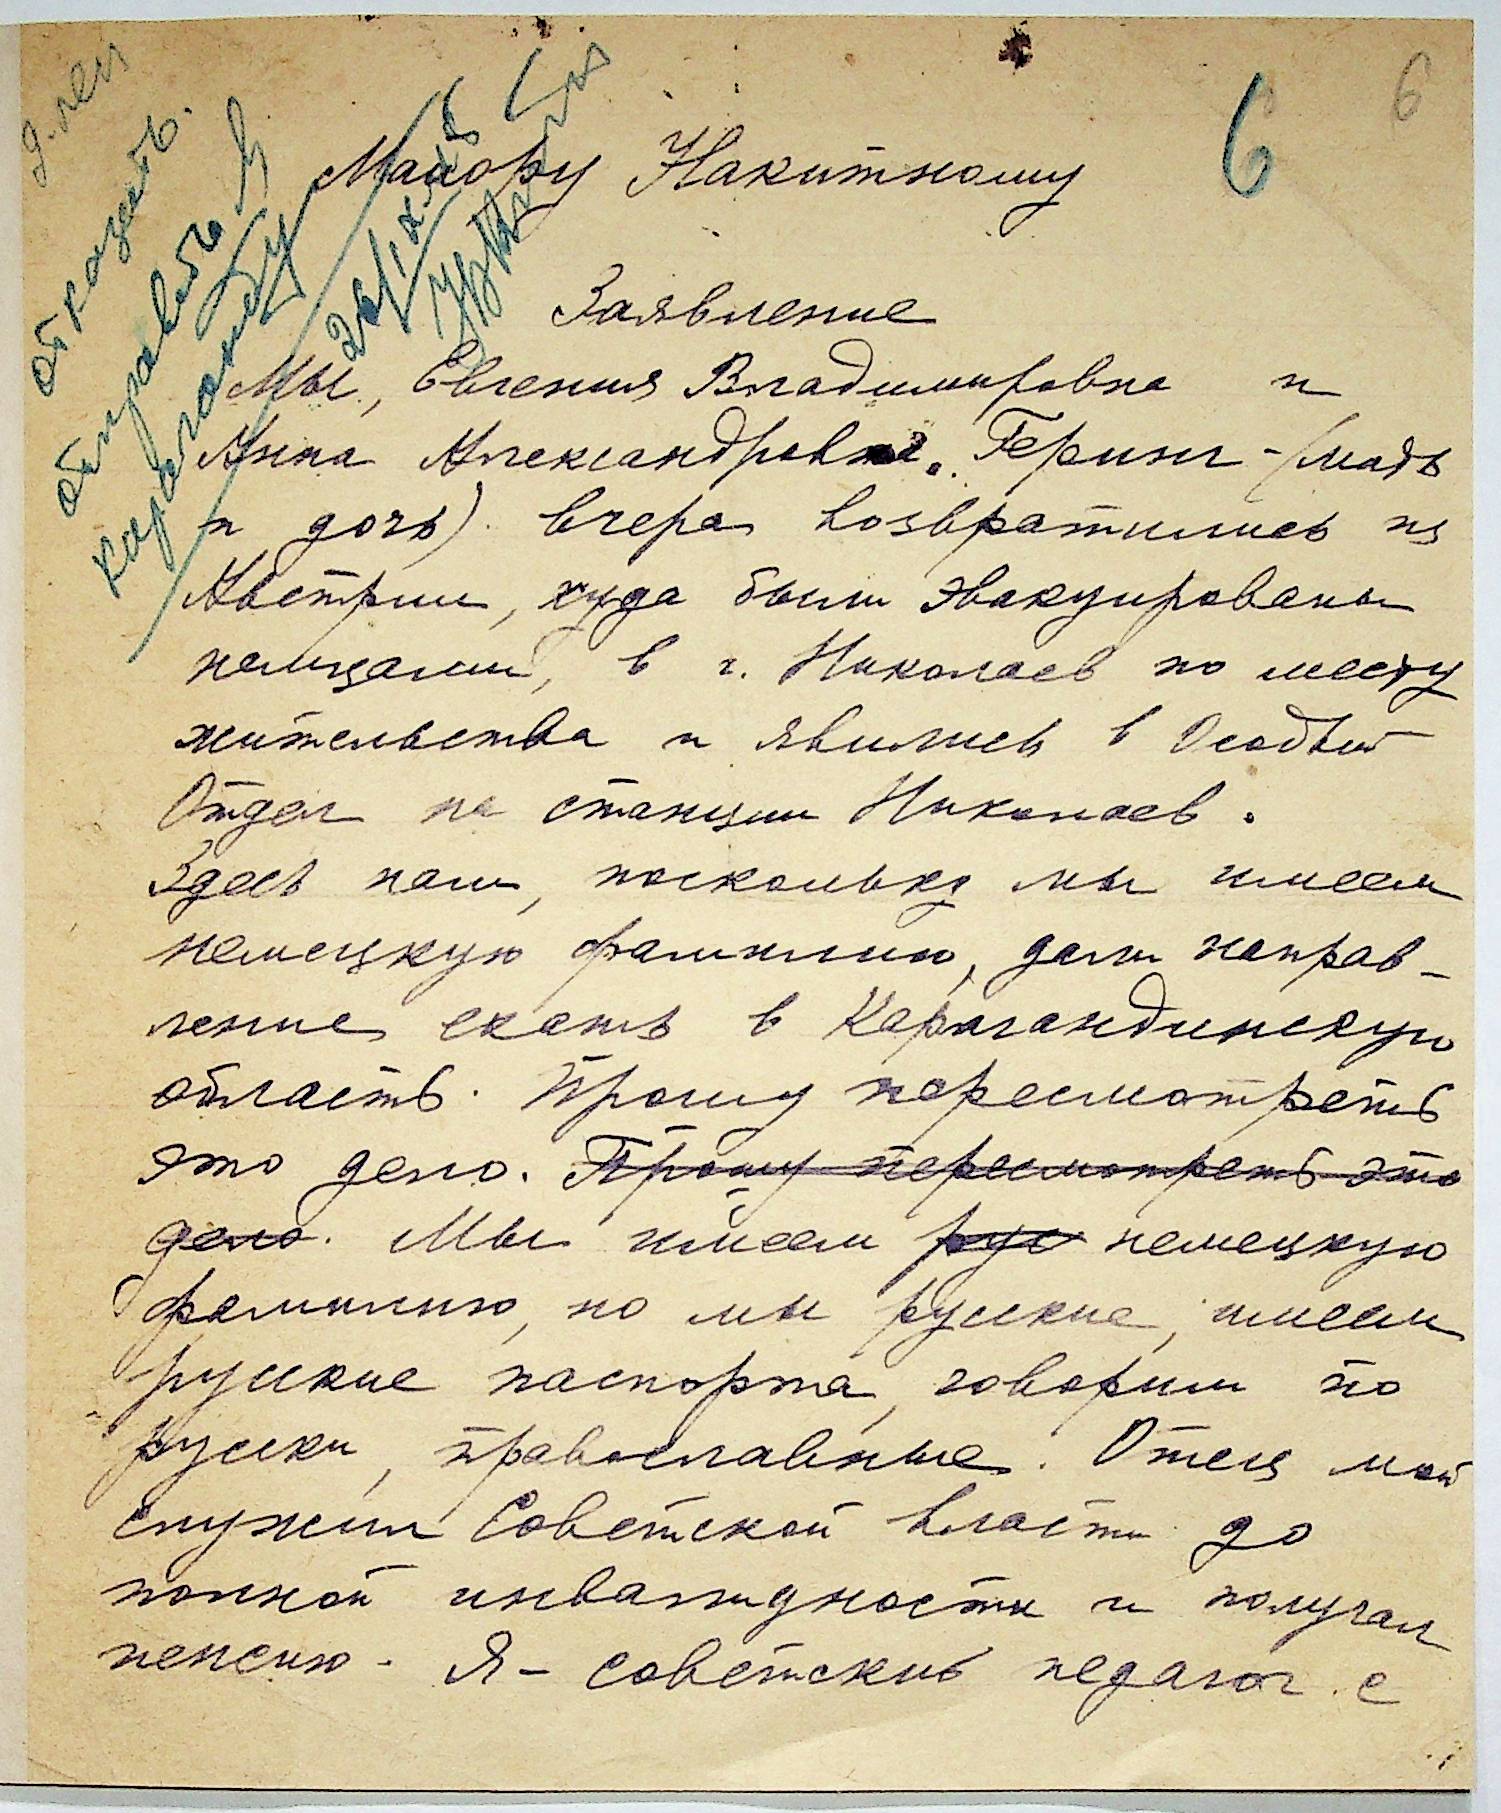 6
6
отказать.
отправить в
Караганду
Майору Накитному
Заявление
Мы, Евгения Владимировна и
Анна Александровна Геринг - (мать
и дочь) вчера возвратились из
Австрии, куда были эвакуированы
немцами, в г. Николаев по месту
жительства и явились в Особый
Отдел на станции Николаев.
Здесь нам, поскольку мы имеем
немецкую фамилию, дали направ-
ление ехать в Карагандинскую
область. Прошу пересмотреть
это дело. Прошу пересмотреть это
дело. Мы имеем рус немецкую
фамилию, но мы русские, имеем
русские паспорта, говорим по
русски, православные. Отец мой
служил Советской власти до
полной инвалидности и получал
пенсию. Я - советский педагог с